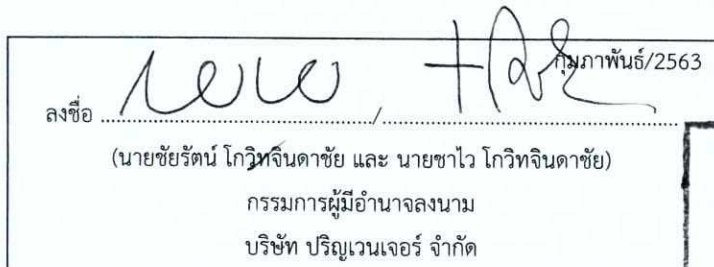 กุมภาพันธ์/2563
ลงชื่อ ............................................../..................................................
(นายชัยรัตน์ โกวิทจินดาชัย และ นายชาไว โกวิทจินดาชัย)
กรรมการผู้มีอำนาจลงนาม
บริษัท ปริญเวนเจอร์ จำกัด